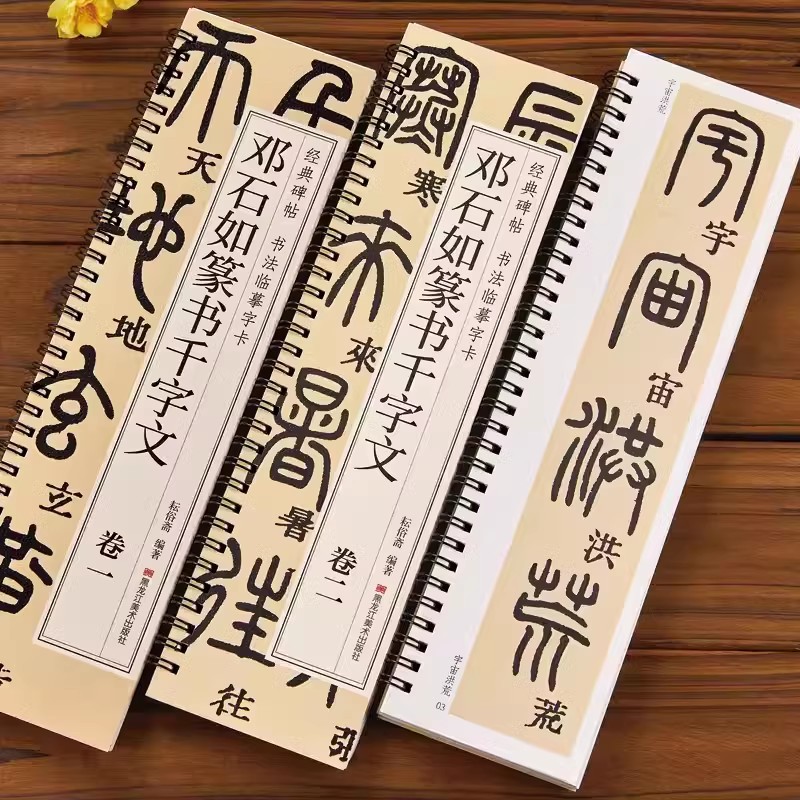 天
地
玄
经典碑帖 书法临摹字卡
邓石如篆书千字文
卷一
耘俗斋 编著
黑龙江美术出版社
寒
來
暑
往
张
经典碑帖 书法临摹字卡
邓石如篆书千字文
卷二
耘俗斋 编著
黑龙江美术出版社
宇宙洪荒
宇
宙
洪
荒
宇宙洪荒
03